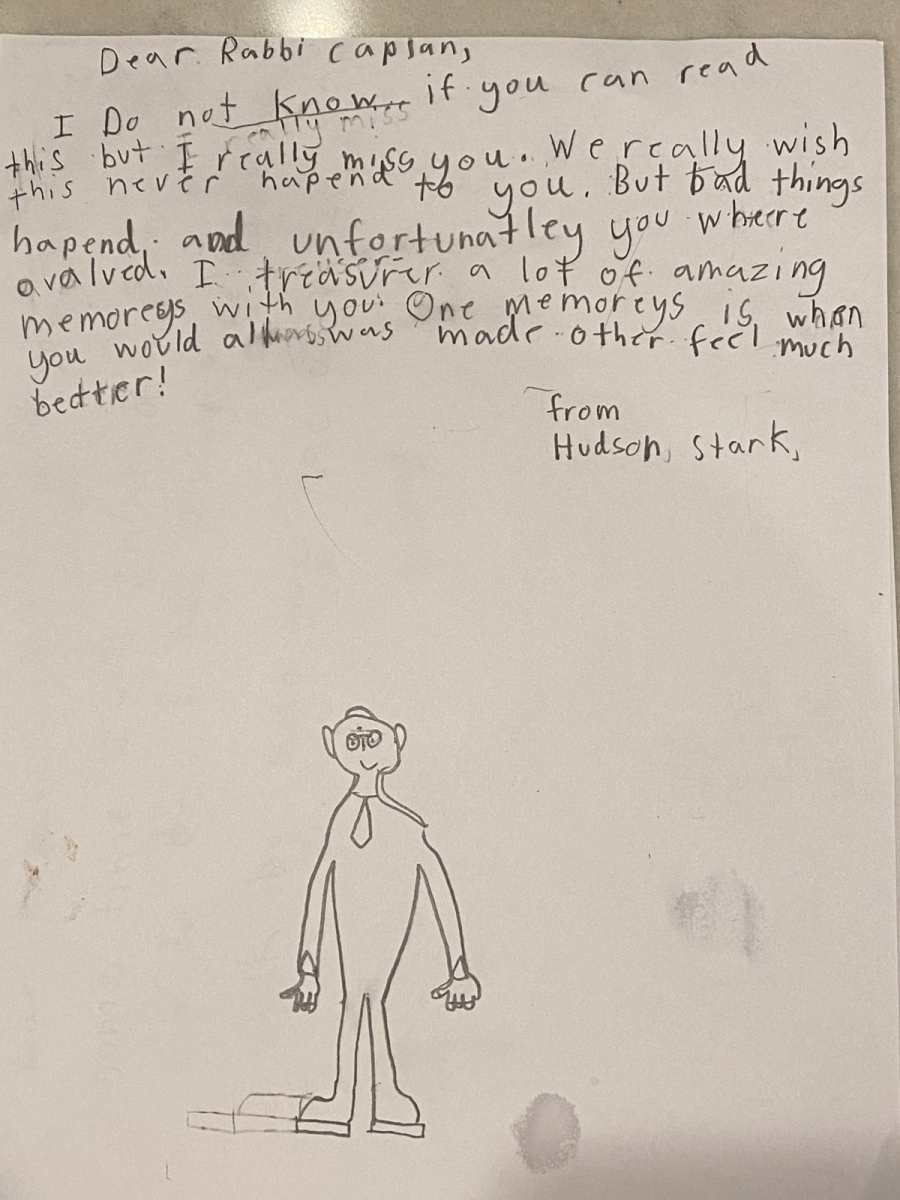 Dear Rabbi Caplan,
I Do not know if you can read
this but I really miss you. We really wish
this never hapend to you. But bad things
hapend. and unfortunatley you where
avalved. I treasurer a lot of amazing
memoreys with you. One memoreys is when
you would allways was made other feel much
better!
from
Hudson, Stark,